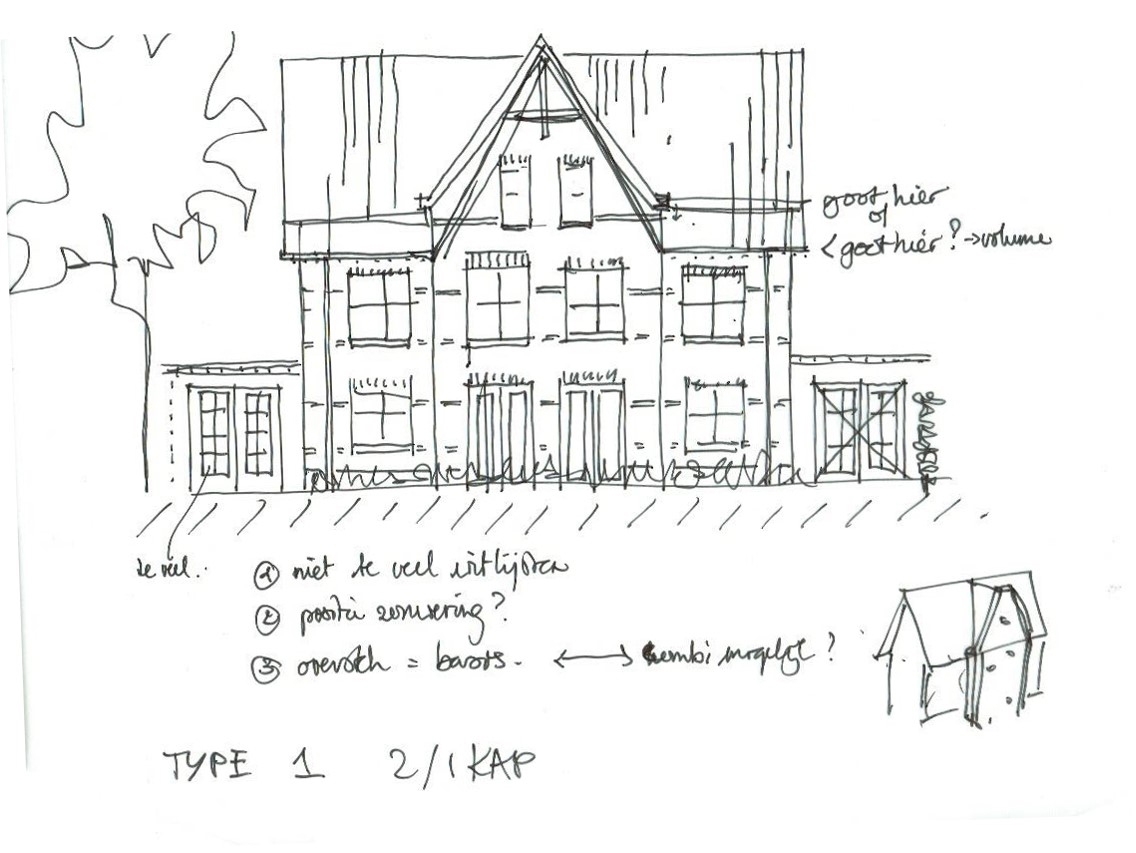 goot hier
of
< goot hier ? → volume
te veel..
① niet te veel uitlijsten
② positie zonwering?
③ overstek = basis. ↔ kombi mogelijk ?
TYPE 1 2/1 KAP